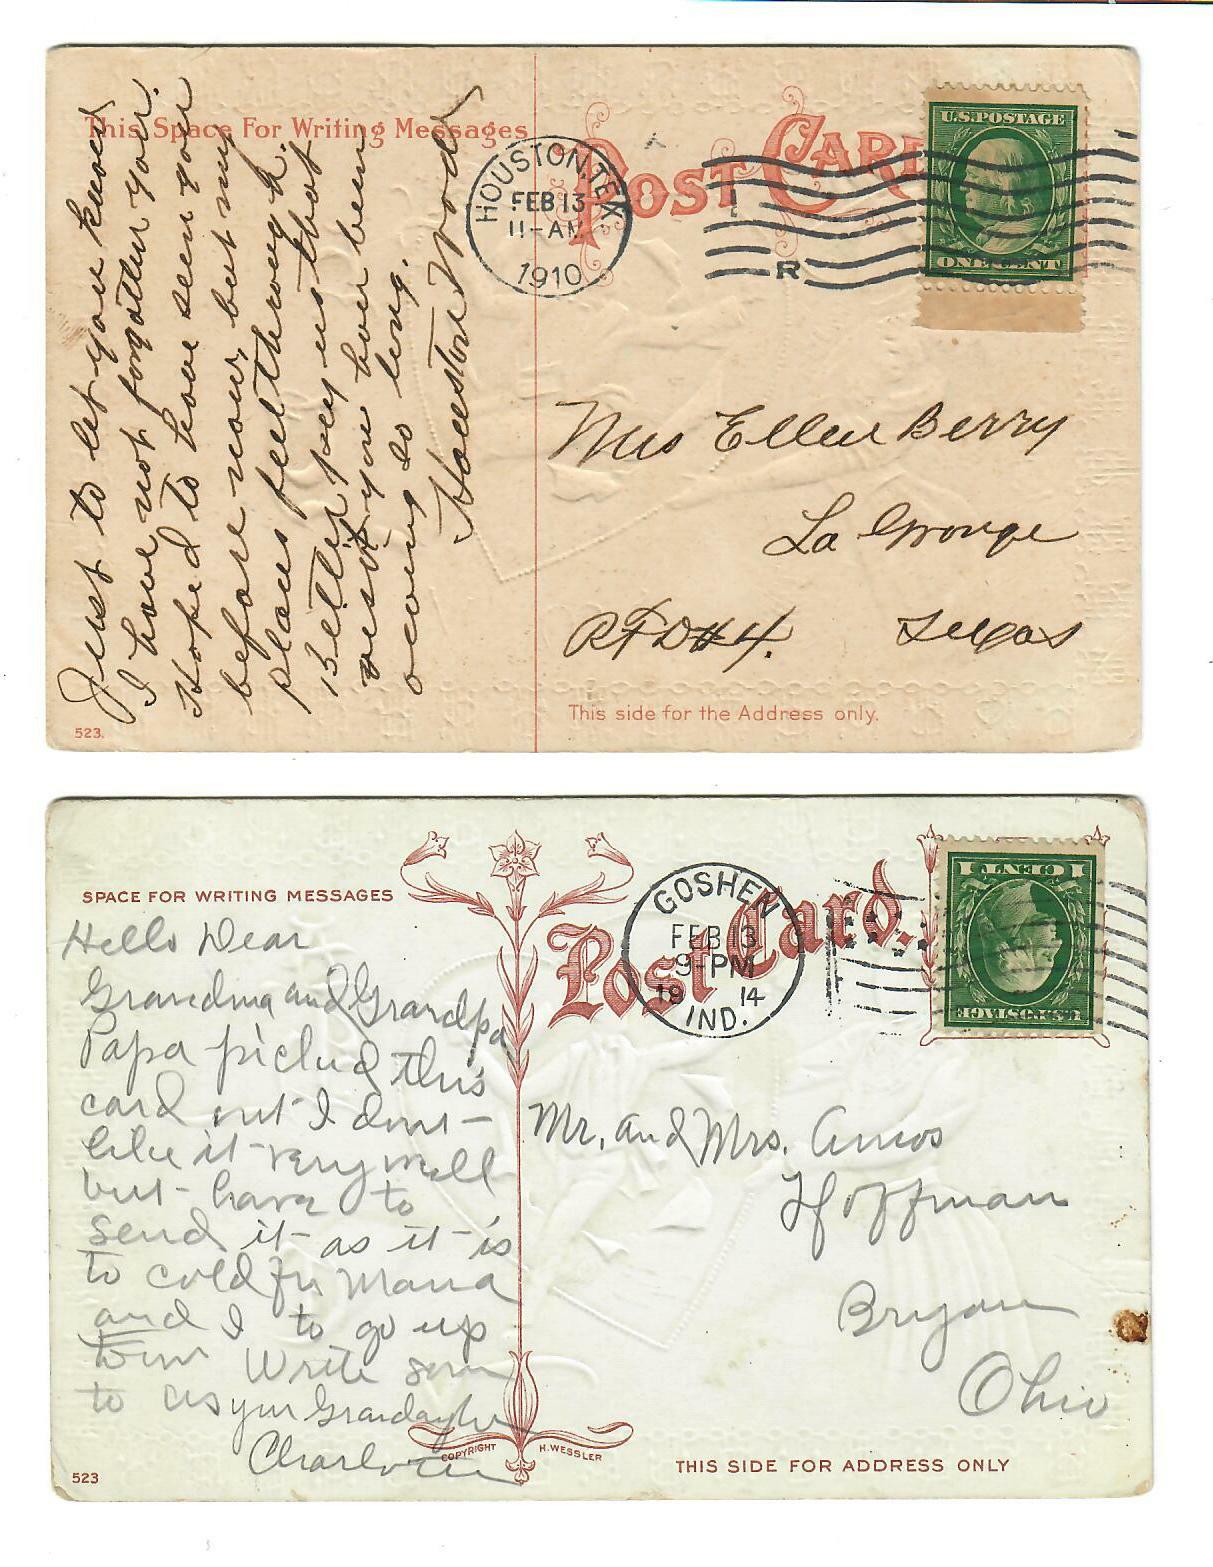 This Space For Writing Messages
POST CARD
U.S. POSTAGE
ONE CENT
HOUSTON, TEX
FEB 13
11-AM
1910
R
Just to let you know
I have not forgotten you.
Hoped to have seen you
before now, but my
plans fell through.
Bettie says us that
visit you have been
owing so long.
Houston Woods
Mrs Ellen Berry
La Grange
RFD#4. Texas
This side for the Address only.
523.
SPACE FOR WRITING MESSAGES
Post Card.
U.S. POSTAGE
1 CENT 1
GOSHEN
FEB 13
9-PM
19 14
IND.
Hello Dear
Grandma and Grandpa
Papa picked this
card out I dont
like it very well
but have to
send it as it is
to cold for Mama
and I to go up
town Write soon
to us your Grandaughter
Charlotte
Mr. and Mrs. Amos
Hoffman
Bryan
Ohio
COPYRIGHT H. WESSLER
THIS SIDE FOR ADDRESS ONLY
523